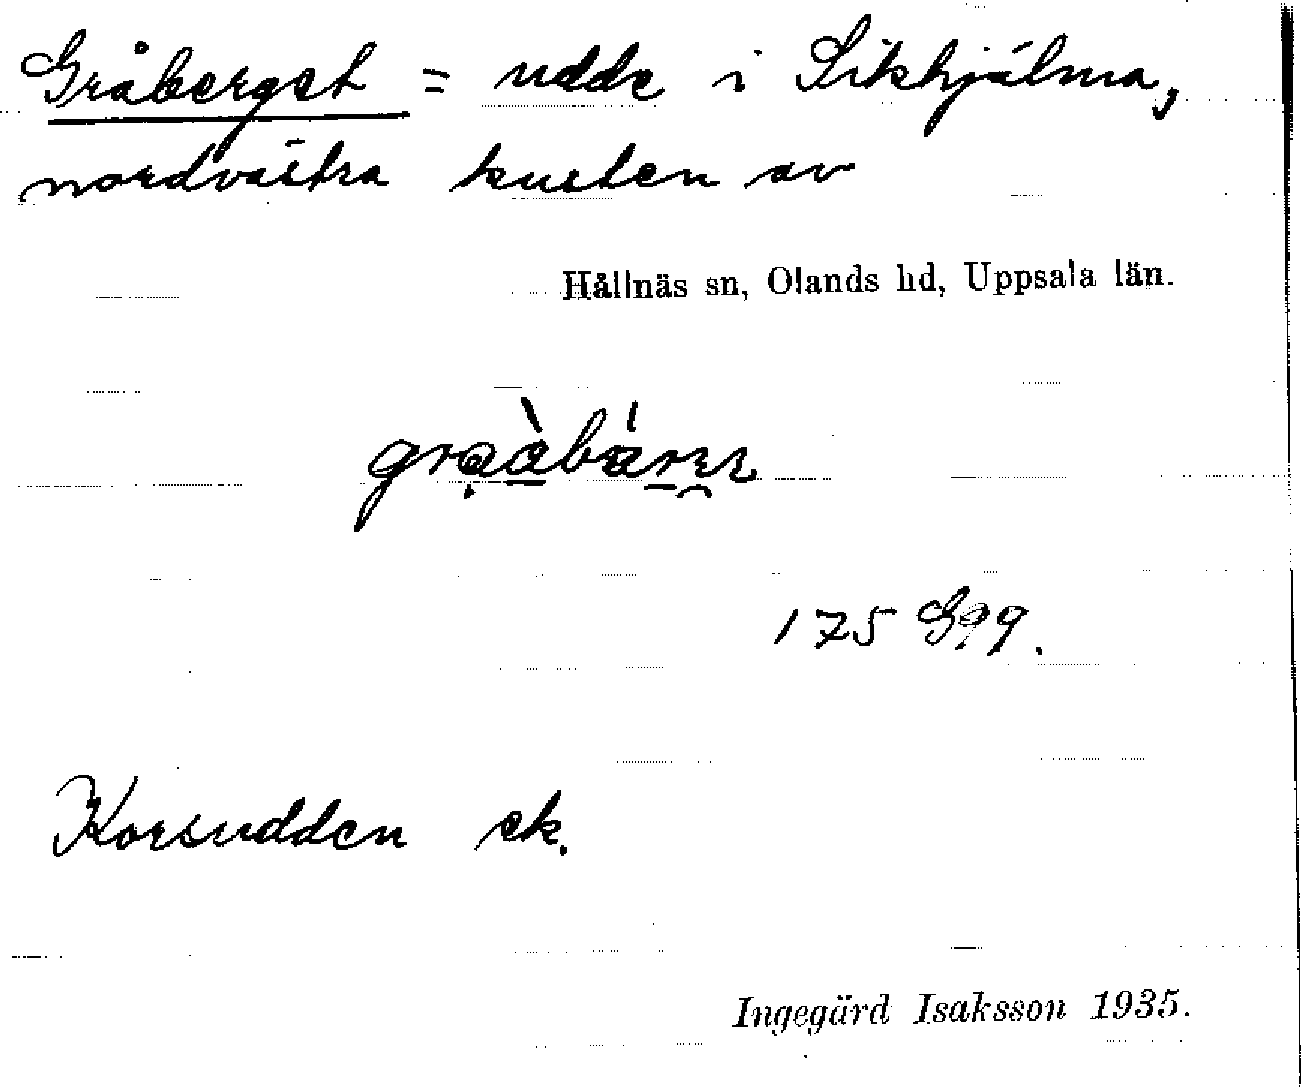 Gråberget = udde i Sikhjälma,
nordvästra kusten av
Hållnäs sn, Olands hd, Uppsala län.
175 G99.
Korsudden ek.
Ingegärd Isaksson 1935.